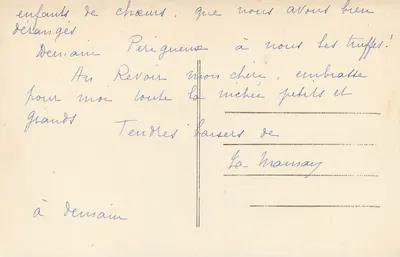 enfants de chœurs, que nous avons bien
dérangés
Demain Périgueux à nous les truffes!
Au Revoir mon chéri, embrasse
pour moi toute la nichée petits et
grands
Tendres baisers de
Ta Maman
à demain